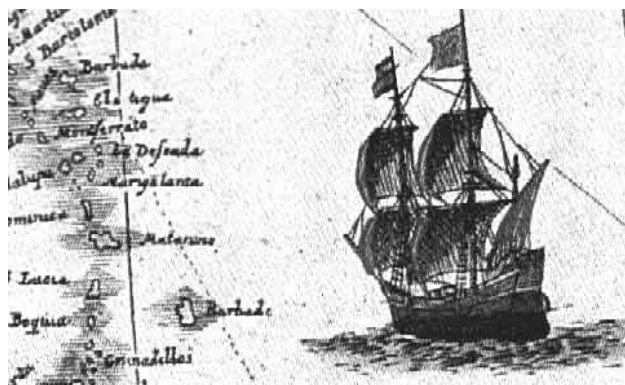 S Martin
S Bartolome
Barbada
Montserrato
La Deseada
Marigalanta
ominica
Matanino
S Lucia
Barbade
Bequia
Granadillos